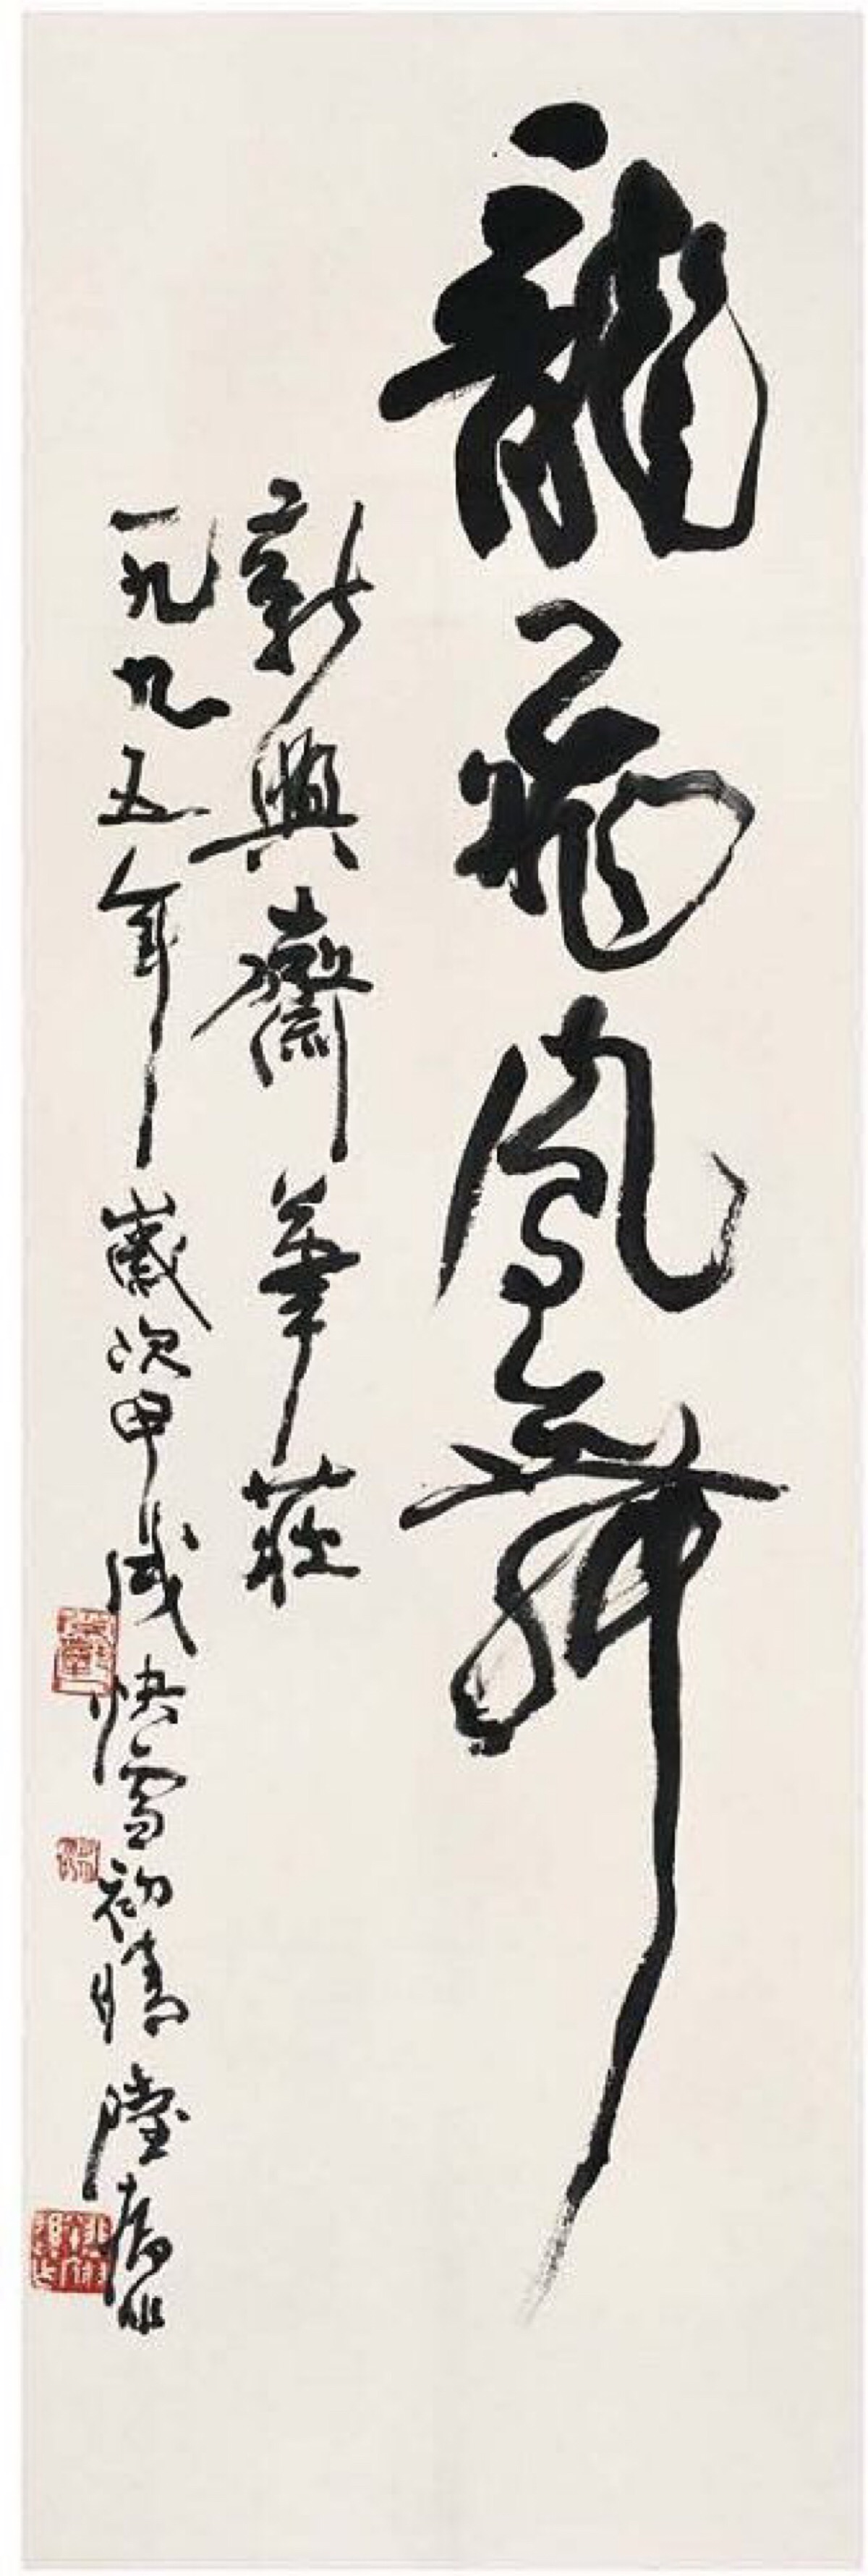 龍飛鳳舞
新興齋華莊
一九九五年歲次甲戌快雪初晴陸